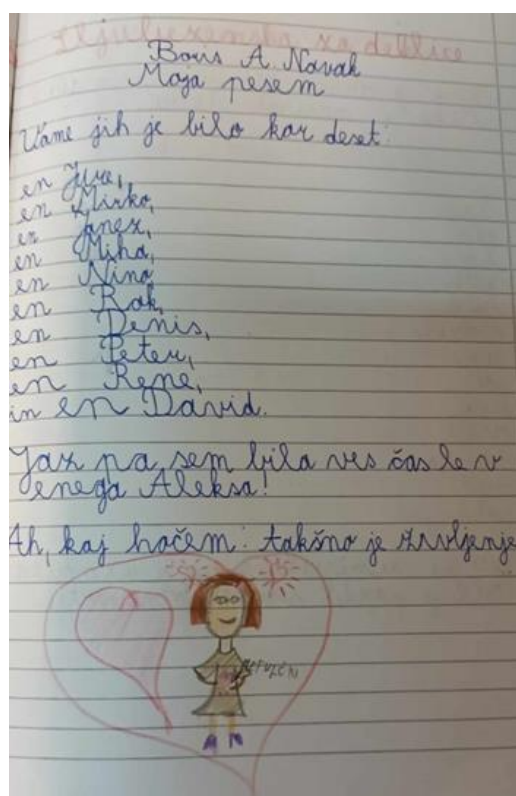 za deklice
Boris A. Novak
Moja pesem
Vame jih je bilo kar deset:
en Jure,
en Mirko,
en Janez,
en Miha,
en Nino
en Rok,
en Denis,
en Peter,
en Rene,
in en David.
Jaz pa sem bila ves čas le v
enega Aleksa!
Ah, kaj hočem: takšno je življenje